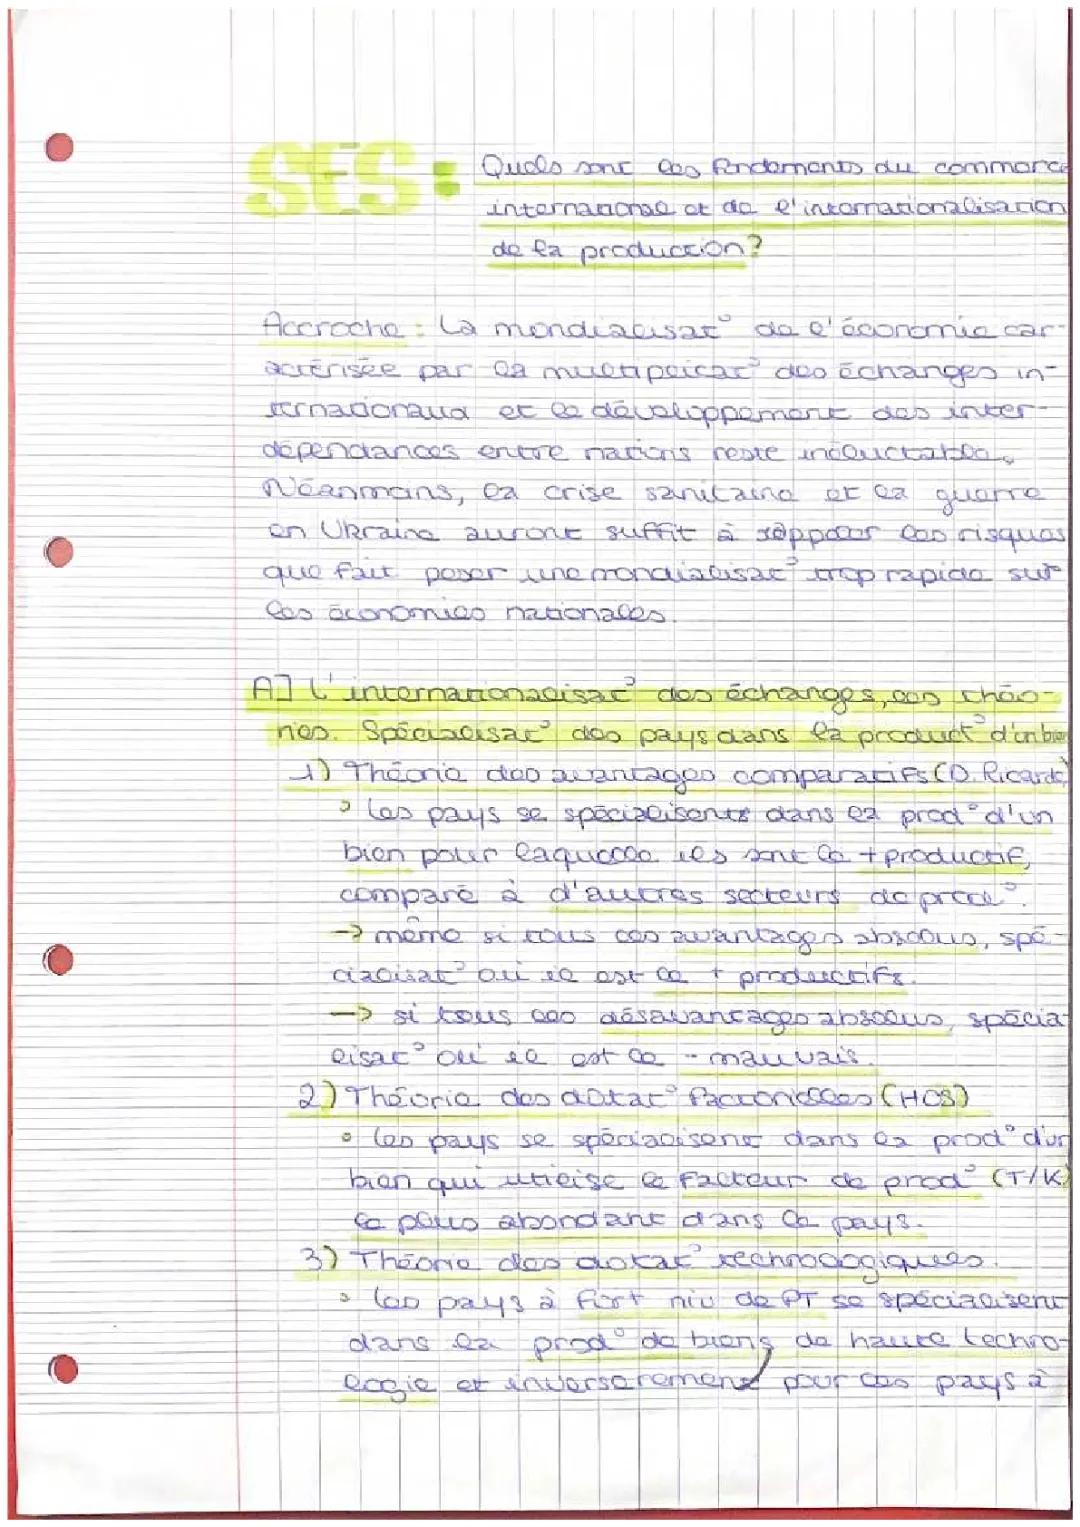 SES : Quels sont les fondements du commerce
international et de l'internationalisation
de la production ?
Accroche : La mondialisat° de l'économie car-
actérisée par la multiplicat° des échanges in-
ternationaux et le développement des inter-
dépendances entre nations reste inéluctable.
Néanmoins, la crise sanitaire et la guerre
en Ukraine auront suffit à rappeler les risques
que fait peser une mondialisat° trop rapide sur
les économies nationales.
A] L'internationalisat° des échanges, les théo-
ries. Spécialisat° des pays dans la product° d'un bien
1) Théorie des avantages comparatifs (D. Ricardo)
• Les pays se spécialisents dans la prod° d'un
bien pour laquelle ils sont le + productif,
comparé à d'autres secteurs de prod°.
-> même si tous les avantages absolus, spé-
cialisat° où il est le + productifs.
-> si tous les désavantages absolus, spécia-
lisat° où il est le - mauvais.
2) Théorie des dotat° factorielles (HOS)
• Les pays se spécialisent dans la prod° d'un
bien qui utilise le facteur de prod° (T/K)
le plus abondant dans le pays.
3) Théorie des dotat° technologiques.
• Les pays à fort niv de PT se spécialisent
dans la prod° de biens de haute techno-
logie et inversement pour les pays à